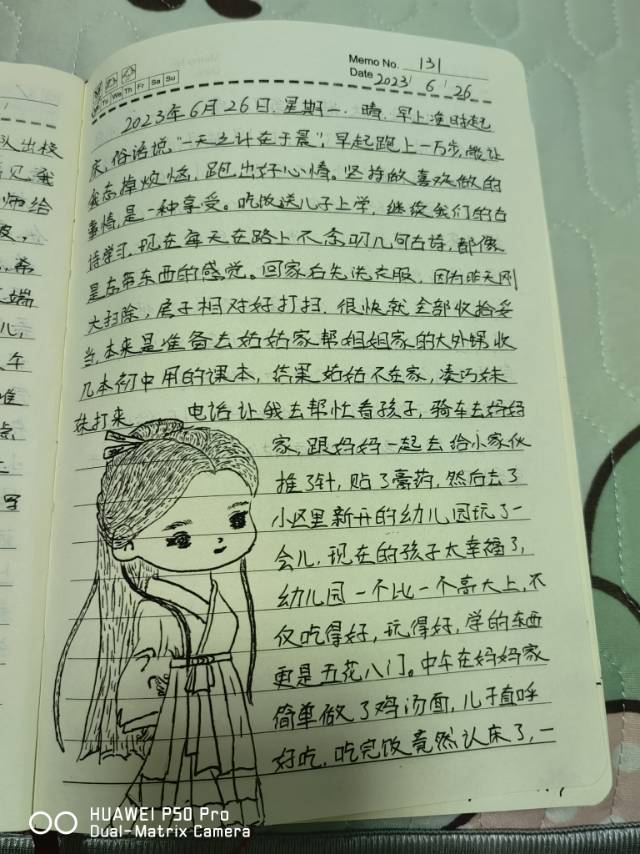 Memo No. 131
Mo Tu We Th Fr Sa Su
Date 2023 / 6 / 26
2023年6月26日.星期一.晴.早上准时起
床,俗话说"一天之计在于晨",早起跑上一万步,能让
我忘掉烦恼,跑出好心情。坚持做喜欢做的
事情,是一种享受。吃饭送儿子上学,继续我们的古
诗学习,现在每天在路上不念叨几句古诗,都像
是忘带东西的感觉。回家后先洗衣服,因为昨天刚
大扫除,房子相对好打扫,很快就全部收拾妥
当,本来是准备去姑姑家帮姐姐家的大外甥收
几本初中用的课本,结果姑姑不在家,凑巧妹
妹打来 电话让我去帮忙看孩子,骑车去妈妈
家,跟妈妈一起去给小家伙
推了针,贴了膏药,然后去了
小区里新开的幼儿园玩了一
会儿.现在的孩子太幸福了,
幼儿园一个比一个高大上,不
仅吃得好,玩得好,学的东西
更是五花八门。中午在妈妈家
简单做了鸡汤面,儿子直呼
好吃.吃完饭竟然认床了,一
队出校
见我
师给
希
端
儿,
午
准
点
写
HUAWEI P50 Pro
Dual-Matrix Camera